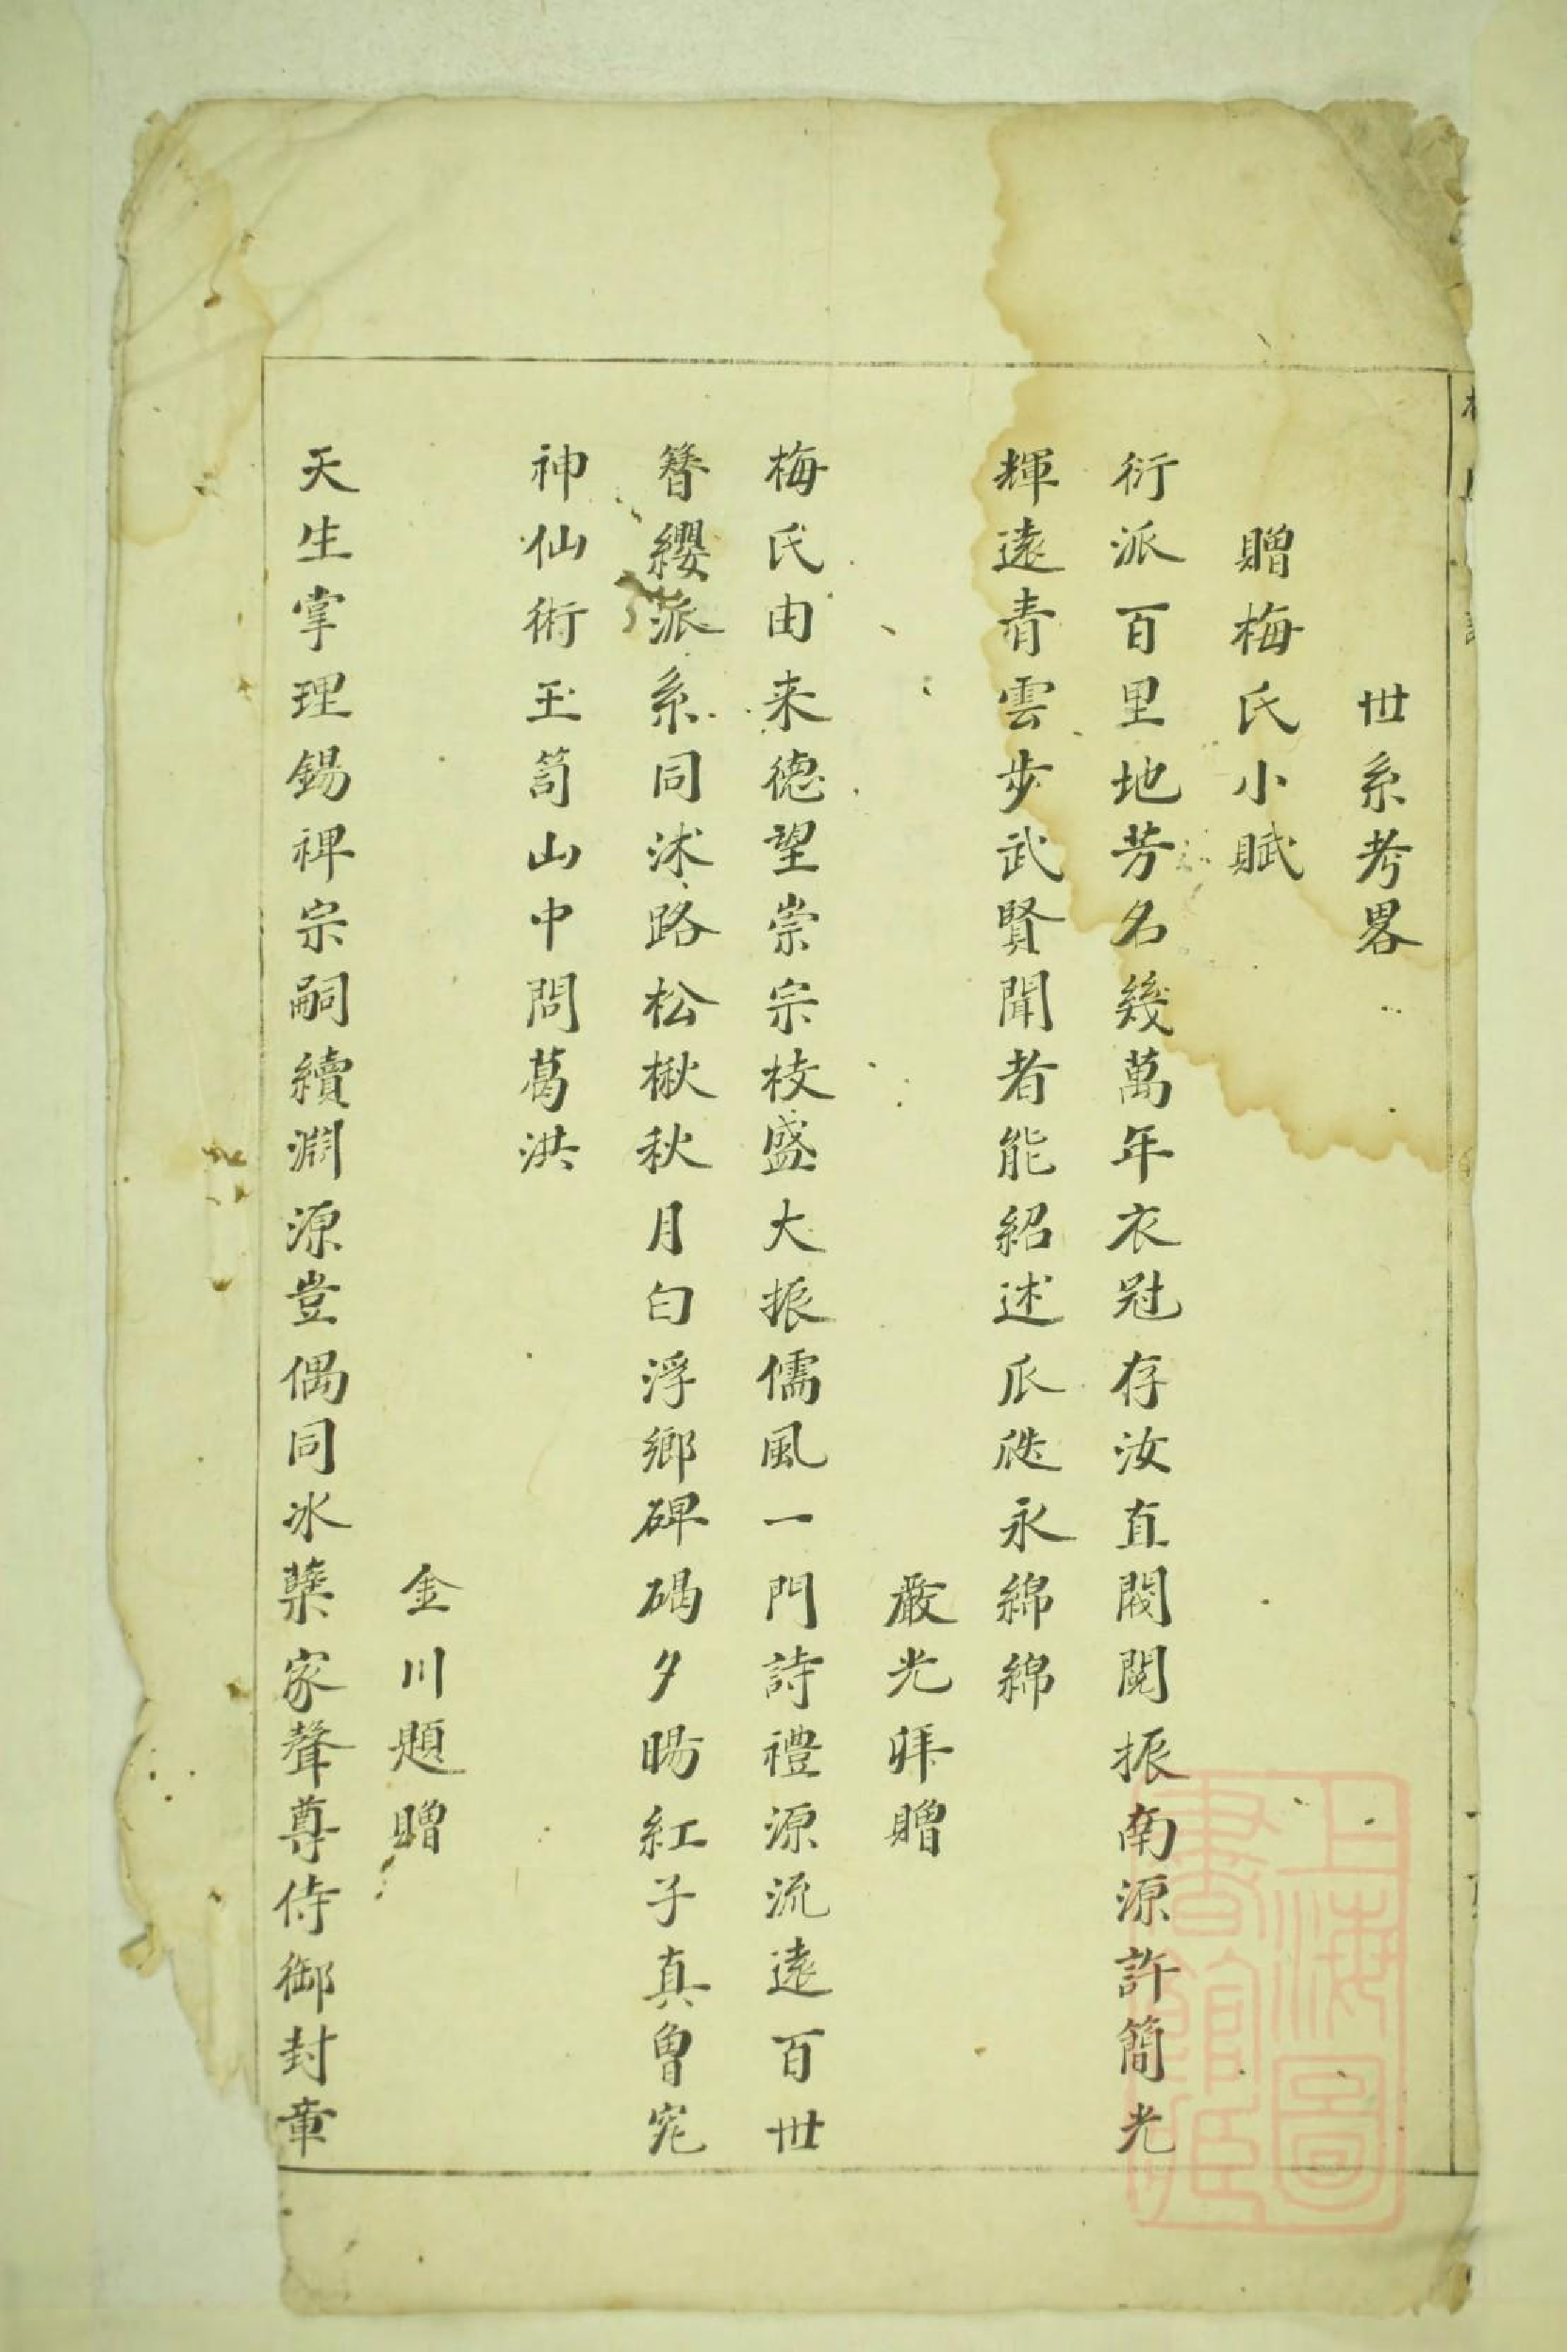 世系考畧
贈梅氏小賦
衍派百里地芳名幾萬年衣冠存汝直閥閱振南源許簡光
輝遠青雲步武賢聞者能紹述瓜瓞永綿綿
嚴光拜贈
梅氏由来德望崇宗枝盛大振儒風一門詩禮源流遠百世
簪纓派系同沭路松楸秋月白浮鄉碑碣夕暘紅子真曾宛
神仙術玉笥山中問葛洪
金川題贈
天生掌理錫禆宗嗣續淵源豈偶同冰蘖家聲尊侍御封章
上海圖書館藏